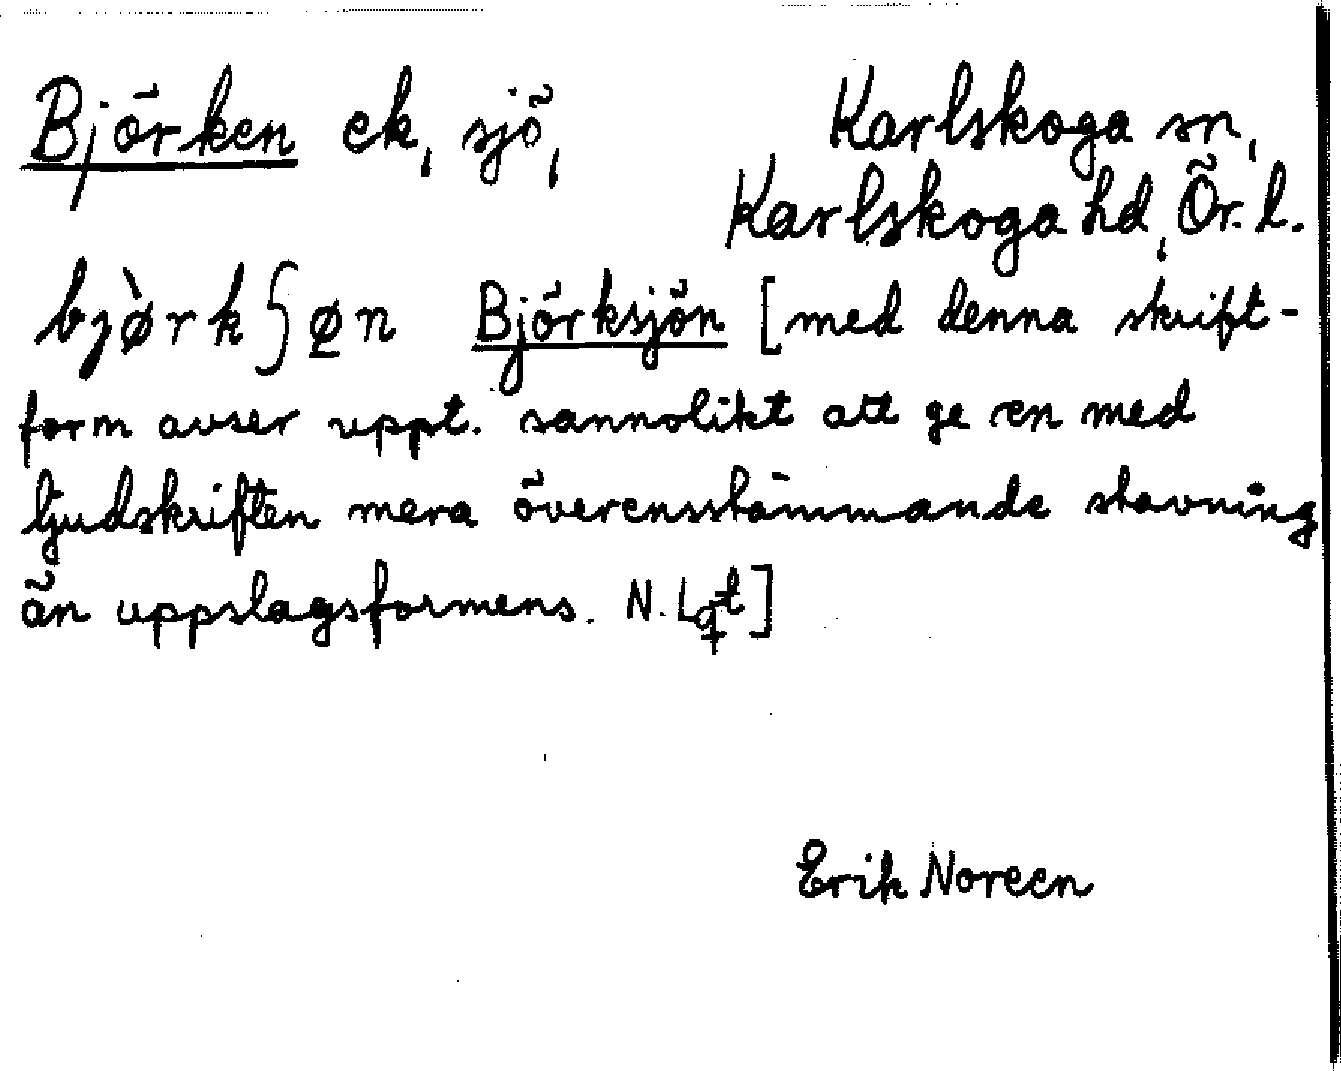 Björken ek, sjö, Karlskoga sn,
Karlskoga hd, Ör. l.
bjø̀rkʃø̠n Björksjön [med denna skrift-
form avser uppt. sannolikt att ge en med
ljudskriften mera överensstämmande stavning
än uppslagsformens. N. Lqt]
Erik Noreen